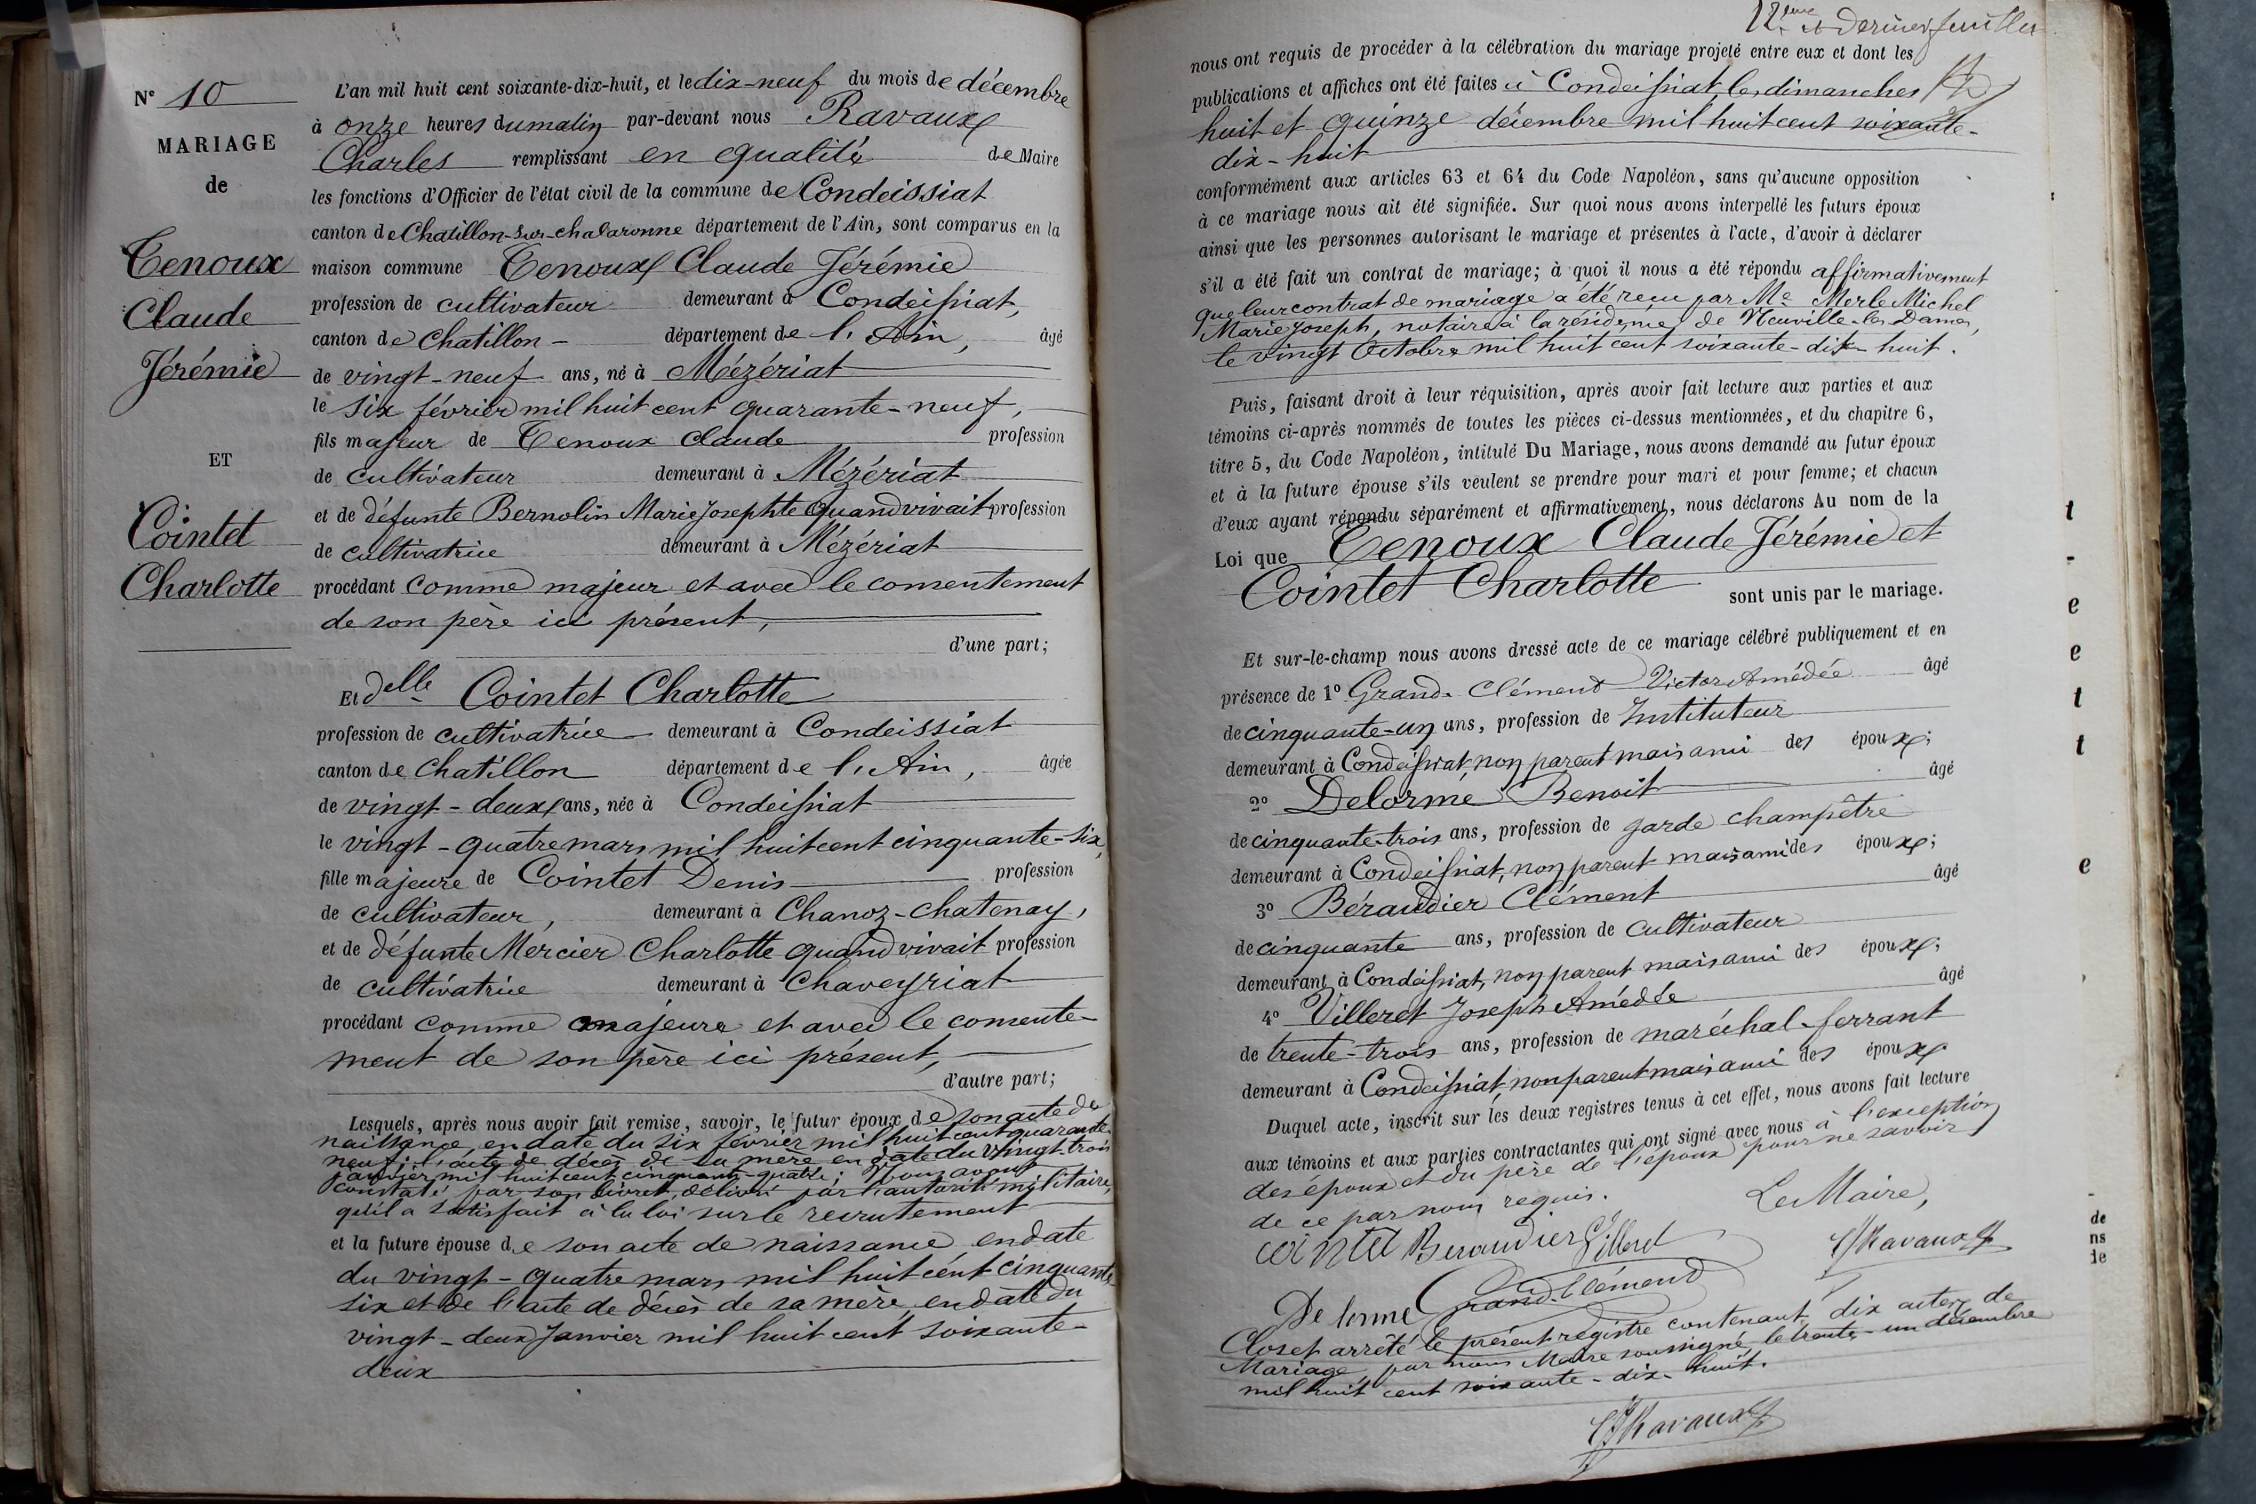 N° 10
MARIAGE
de
Tenoux
Claude
Jérémie
ET
Cointet
Charlotte
L'an mil huit cent soixante-dix-huit, et le dix-neuf du mois de décembre
à onze heures du matin par-devant nous Ravaux
Charles remplissant en qualité de Maire
les fonctions d'Officier de l'état civil de la commune de Condeissiat
canton de Chatillon-sur-chalaronne département de l'Ain, sont comparus en la
maison commune Tenoux Claude Jérémie
profession de cultivateur demeurant à Condeissiat,
canton de Chatillon - département de l'Ain, âgé
de vingt-neuf ans, né à Mézériat
le six février mil huit cent quarante-neuf,
fils majeur de Tenoux Claude profession
de cultivateur demeurant à Mézériat
et de défunte Bernolin Marie Josephte quand vivait profession
de cultivatrice demeurant à Mézériat
procédant comme majeur et avec le consentement
de son père ici présent,
d'une part;
Et delle Cointet Charlotte
profession de cultivatrice demeurant à Condeissiat
canton de Chatillon département de l'Ain, âgée
de vingt-deux ans, née à Condeissiat
le vingt-quatre mars mil huit cent cinquante-six,
fille majeure de Cointet Denis profession
de cultivateur, demeurant à Chanoz-chatenay,
et de défunte Mercier Charlotte quand vivait profession
de cultivatrice demeurant à Chaveyriat
procédant comme majeure et avec le consente-
ment de son père ici présent,
d'autre part;
Lesquels, après nous avoir fait remise, savoir, le futur époux de son acte de
naissance en date du six février mil huit cent quarante-
neuf; l'acte de décès de sa mère en date du vingt-trois
janvier mil huit cent cinquante-quatre; Nous avons
constaté par son livret, délivré par l'autorité militaire,
qu'il a satisfait à la loi sur le recrutement
et la future épouse de son acte de naissance en date
du vingt-quatre mars mil huit cent cinquante
six et de l'acte de décès de sa mère, en date du
vingt-deux Janvier mil huit cent soixante-
deux
12eme et dernier feuillet
nous ont requis de procéder à la célébration du mariage projeté entre eux et dont les
publications et affiches ont été faites à Condeissiat les dimanches
huit et quinze décembre mil huit cent soixante-
dix-huit
conformément aux articles 63 et 64 du Code Napoléon, sans qu'aucune opposition
à ce mariage nous ait été signifiée. Sur quoi nous avons interpellé les futurs époux
ainsi que les personnes autorisant le mariage et présentes à l'acte, d'avoir à déclarer
s'il a été fait un contrat de mariage; à quoi il nous a été répondu affirmativement
que leur contrat de mariage a été reçu par Me Merle Michel
Marie Joseph, notaire à la résidence de Neuville-les-Dames,
le vingt Octobre mil huit cent soixante-dix-huit.
Puis, faisant droit à leur réquisition, après avoir fait lecture aux parties et aux
témoins ci-après nommés de toutes les pièces ci-dessus mentionnées, et du chapitre 6,
titre 5, du Code Napoléon, intitulé Du Mariage, nous avons demandé au futur époux
et à la future épouse s'ils veulent se prendre pour mari et pour femme; et chacun
d'eux ayant répondu séparément et affirmativement, nous déclarons Au nom de la
Loi que Tenoux Claude Jérémie et
Cointet Charlotte sont unis par le mariage.
Et sur-le-champ nous avons dressé acte de ce mariage célébré publiquement et en
présence de 1° Grand-Clément Victor Amédée âgé
de cinquante-un ans, profession de Instituteur
demeurant à Condeissiat, non parent mais ami des époux;
2° Delorme Benoit âgé
de cinquante-trois ans, profession de garde champêtre
demeurant à Condeissiat, non parent mais ami des époux;
3° Béraudier Clément âgé
de cinquante ans, profession de cultivateur
demeurant à Condeissiat, non parent mais ami des époux;
4° Villeret Joseph Amédée âgé
de trente-trois ans, profession de maréchal-ferrant
demeurant à Condeissiat, non parent mais ami des époux
Duquel acte, inscrit sur les deux registres tenus à cet effet, nous avons fait lecture
aux témoins et aux parties contractantes qui ont signé avec nous à l'exception
des époux et du père de l'époux pour ne savoir
de ce par nous requis.
Le Maire,
cointet Beraudier Villeret
Ravaux
De lorme Grand-Clément
Clos et arrêté le présent registre contenant dix actes de
Mariage, par nous Maire soussigné, le trente-un décembre
mil huit cent soixante-dix-huit.
Ravaux
t
-
e
e
t
t
e
de
ns
le